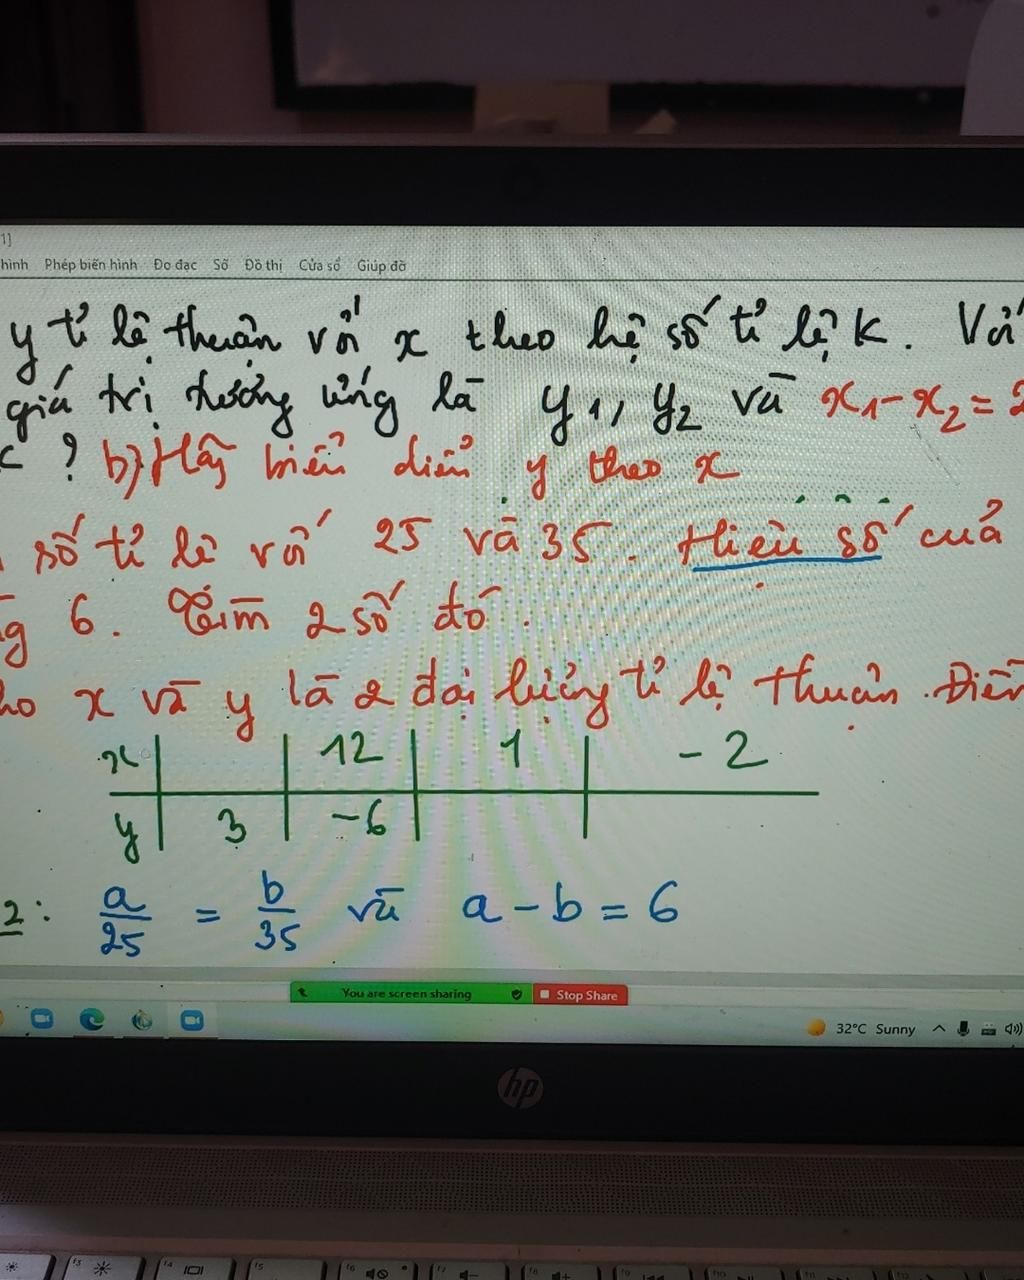 1]
hình Phép biến hình Đo đạc Số Đồ thị Cửa sổ Giúp đỡ
y tỉ lệ thuận với x theo hệ số tỉ lệ k. Với
giá trị tương ứng là y1, y2 và x1 - x2 = 2
? b) Hãy biểu diễn y theo x
số tỉ lệ với 25 và 35. Hiệu số của
6. Tìm 2 số đó.
x và y là 2 đại lượng tỉ lệ thuận. Điền
x 12 1 -2
y 3 -6
2: a/25 = b/35 và a - b = 6
You are screen sharing Stop Share
32°C Sunny
hp